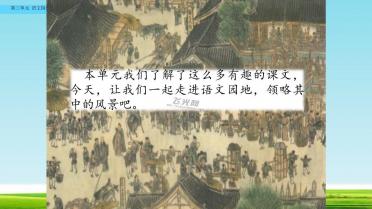 第三单元 语文园
本单元我们了解了这么多有趣的课文，
今天，让我们一起走进语文园地，领略其
中的风景吧。